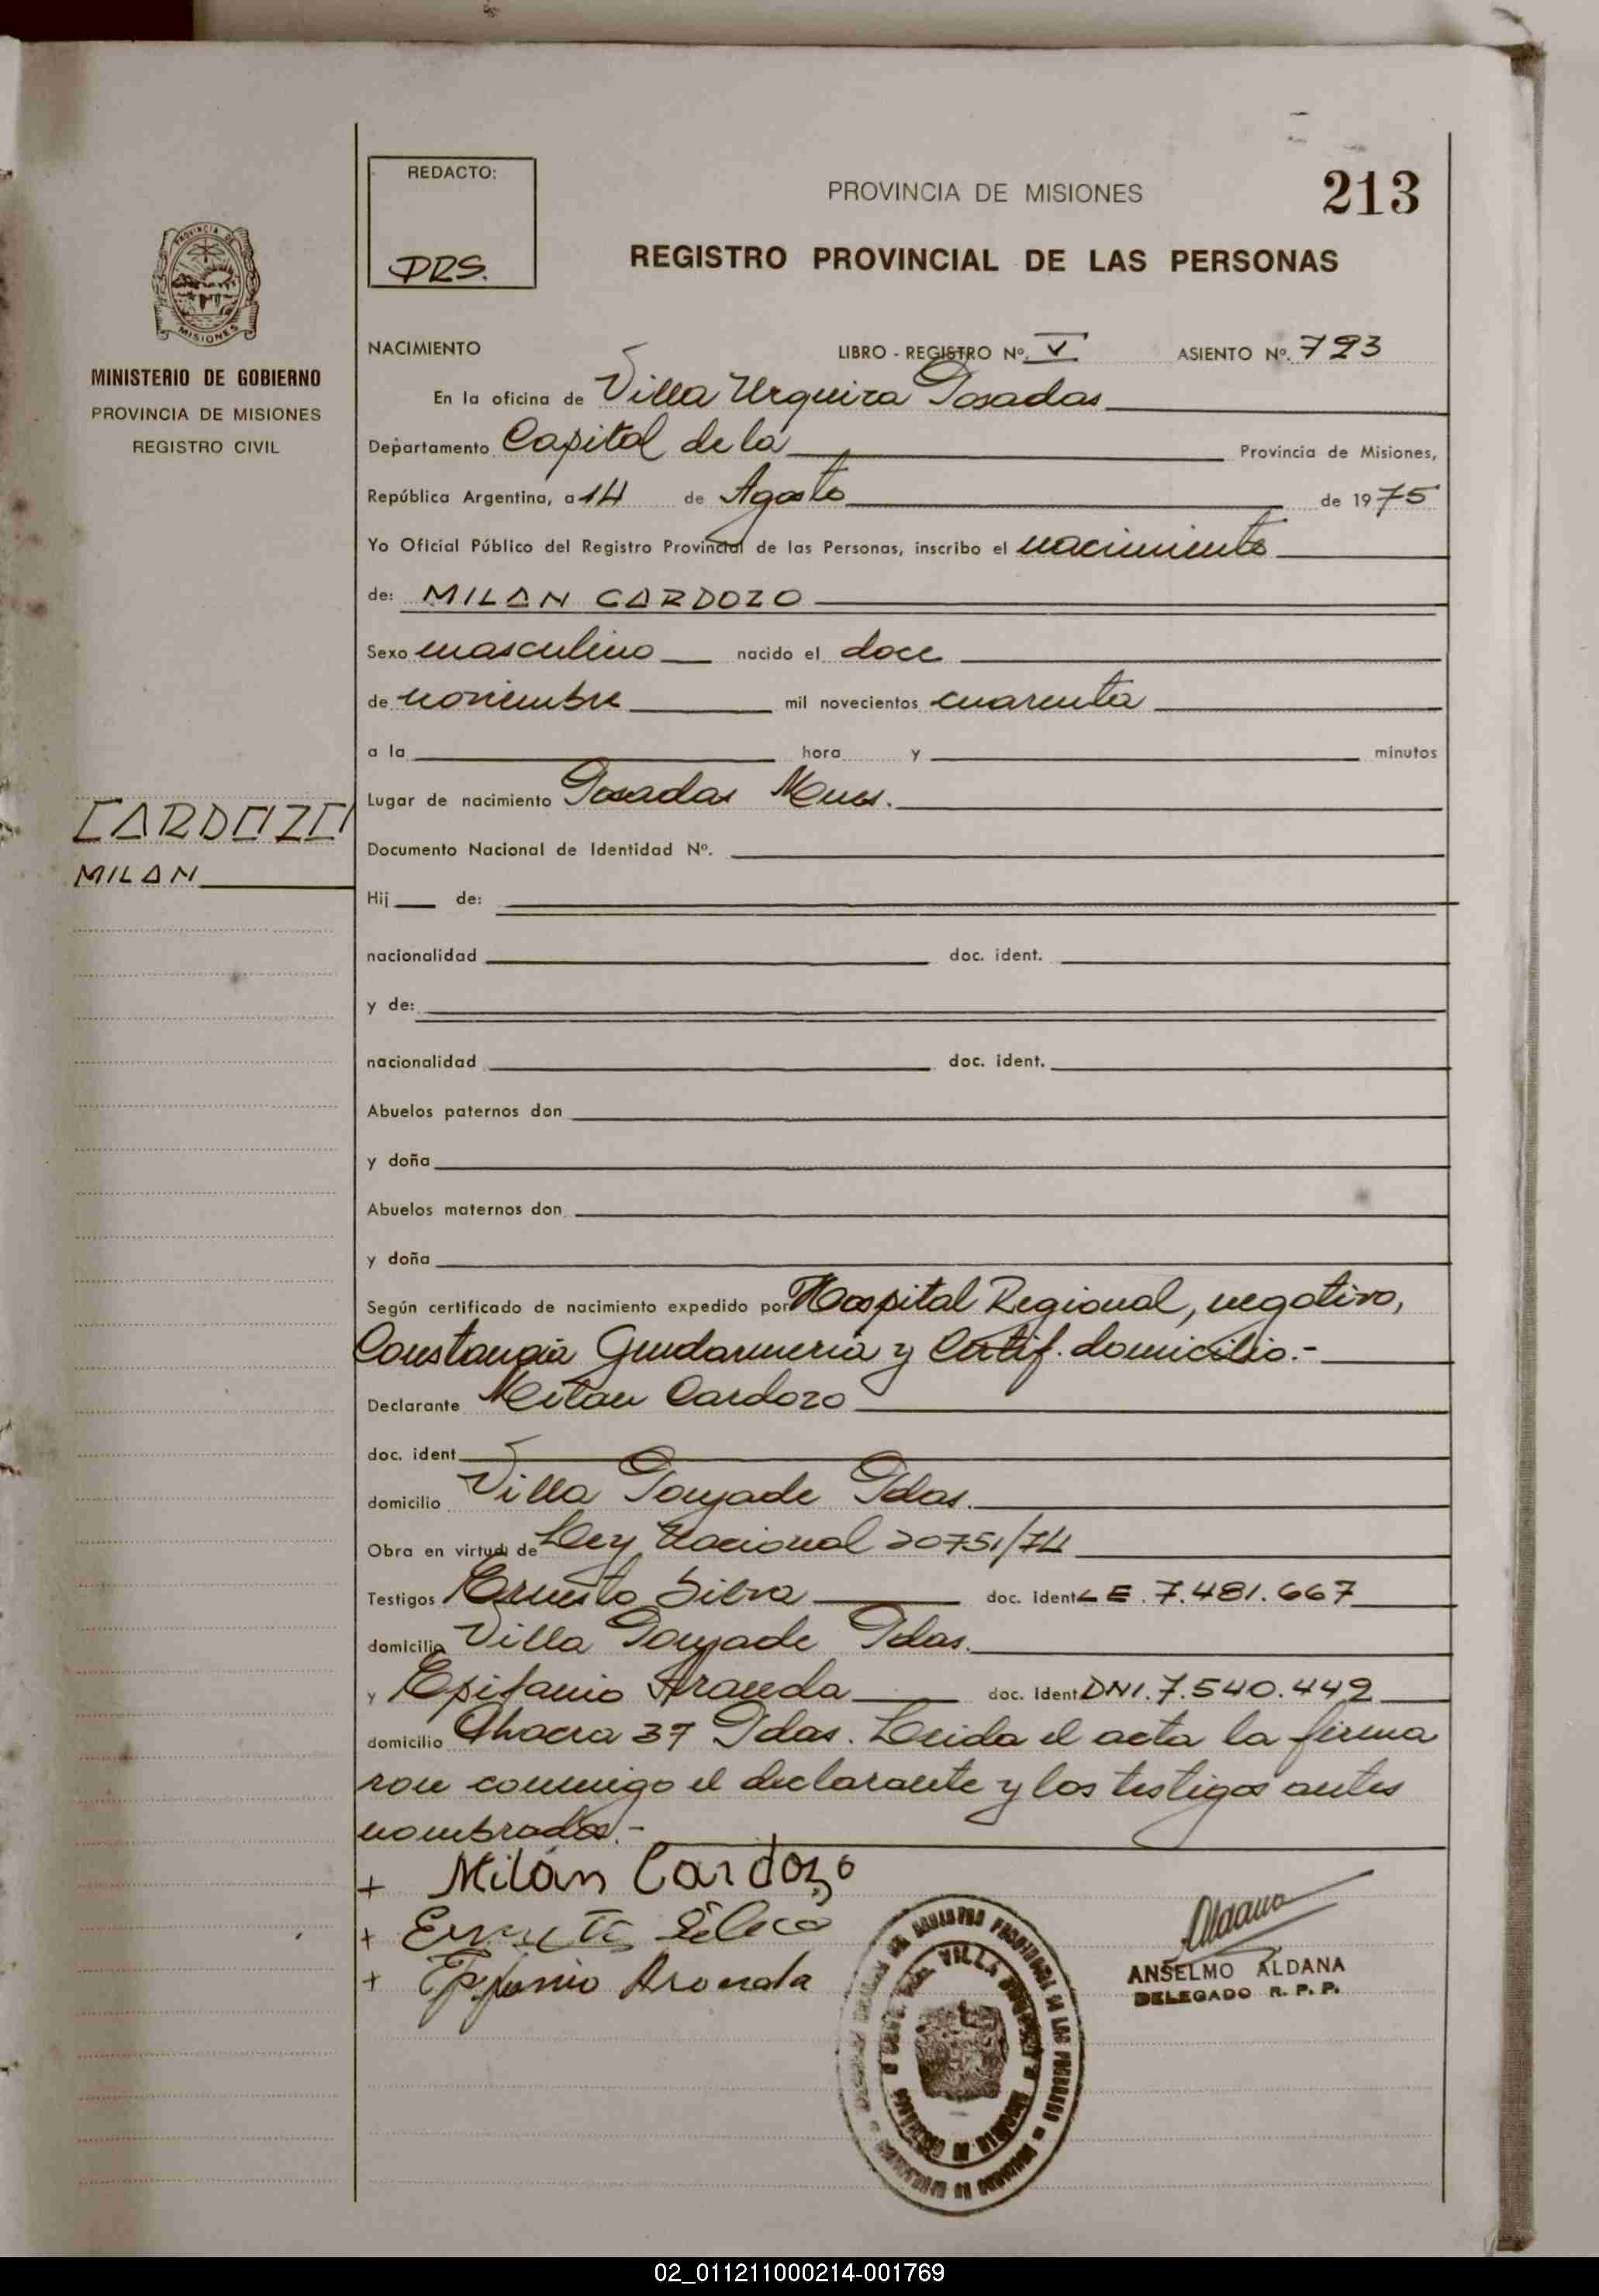 REDACTO:
DRS.
PROVINCIA DE MISIONES
213
REGISTRO PROVINCIAL DE LAS PERSONAS
PROVINCIA DE
MISIONES
MINISTERIO DE GOBIERNO
PROVINCIA DE MISIONES
REGISTRO CIVIL
NACIMIENTO LIBRO - REGISTRO Nº. V ASIENTO Nº. 793
En la oficina de Villa Urquiza Posadas
Departamento Capital de la Provincia de Misiones,
República Argentina, a 14 de Agosto de 1975
Yo Oficial Público del Registro Provincial de las Personas, inscribo el nacimiento
de: MILAN CARDOZO
Sexo masculino nacido el doce
de noviembre mil novecientos cuarenta
a la hora y minutos
Lugar de nacimiento Posadas Mnes.
CARDOZO
MILAN
Documento Nacional de Identidad Nº.
Hij de:
nacionalidad doc. ident.
y de:
nacionalidad doc. ident.
Abuelos paternos don
y doña
Abuelos maternos don
y doña
Según certificado de nacimiento expedido por Hospital Regional, negativo,
Constancia Gendarmeria y Certif. domicilio.-
Declarante Milan Cardozo
doc. ident
domicilio Villa Poujade Pdas.
Obra en virtud de Ley Nacional 20751/74
Testigos Ernesto Silva doc. Ident LE. 7.481.667
domicilio Villa Poujade Pdas.
y Epifanio Aranda doc. Ident DNI. 7.540.449
domicilio Chacra 37 Pdas. Leida el acta la firma
ron conmigo el declarante y los testigos antes
nombrados.-
+ Milán Cardozo
+ Ernesto Silva
+ Epifanio Aranda
Aldana
ANSELMO ALDANA
DELEGADO R. P. P.
VILLA
02_011211000214-001769